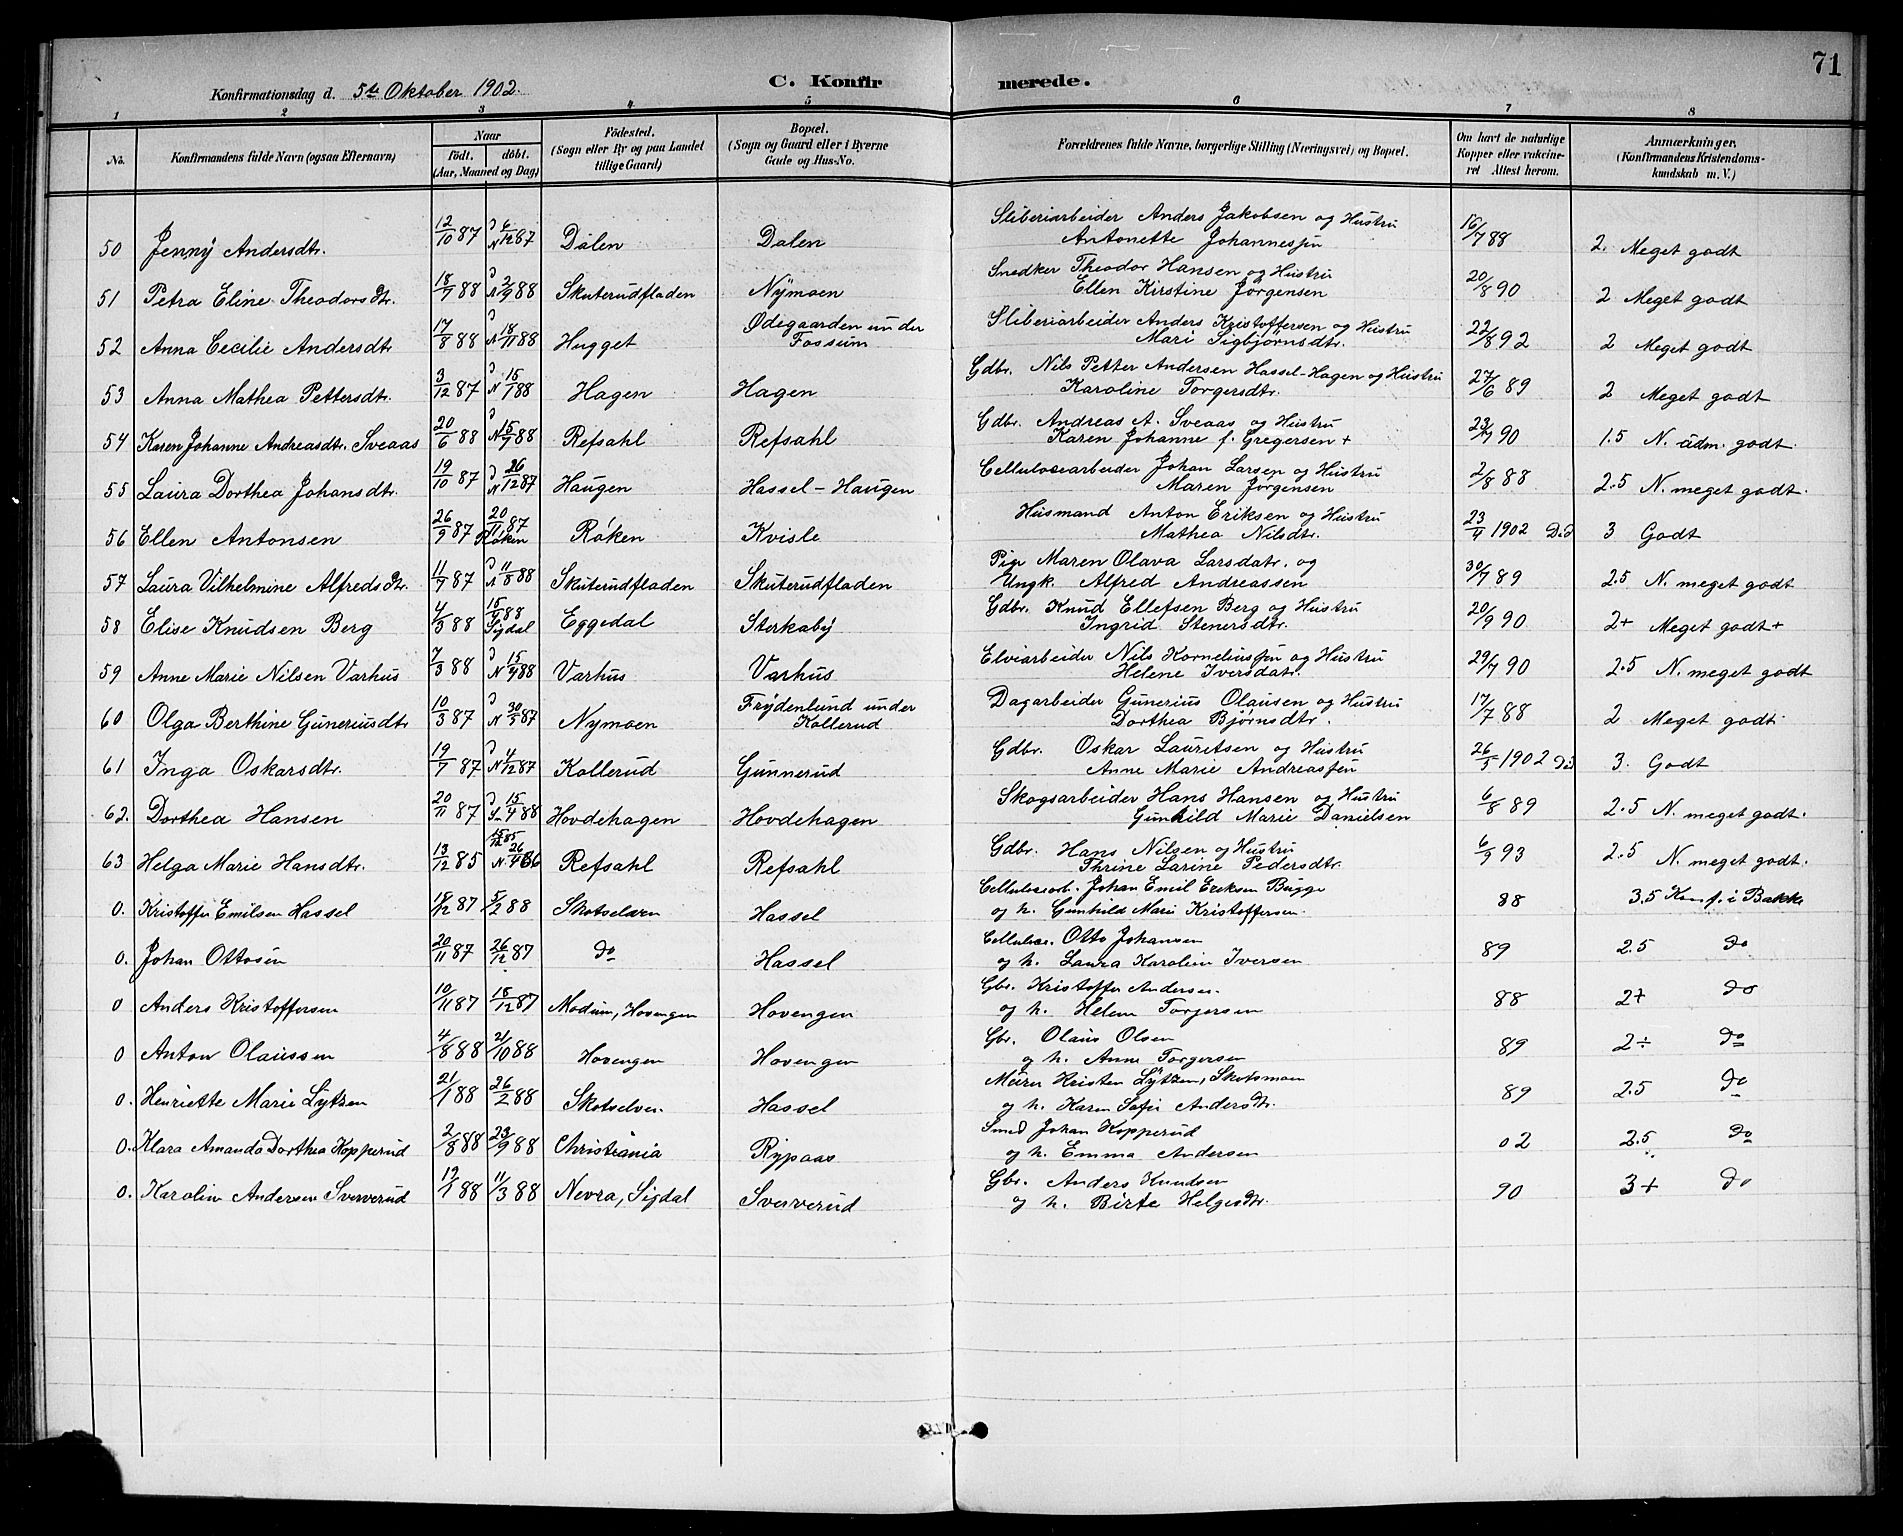 71
Konfirmationsdag d. 5te Oktober 1902. C. Konfirmerede.
1 2 3 4 5 6 7 8
No. Konfirmandens fulde Navn (ogsaa Efternavn) Naar født. døbt. (Aar, Maaned og Dag) Fødested. (Sogn eller By og paa Landet tillige Gaard) Bopæl. (Sogn og Gaard eller i Byerne Gade og Hus-No. Forældrenes fulde Navne, borgerlige Stilling (Næringsvei) og Bopæl. Om havt de naturlige Kopper eller vakcineret Attest herom. Anmærkninger. (Konfirmandens Kristendomskundskab m. V.)
50 Jenny Andersdtr. 12/10 87 N 6/12 87 Dalen Dalen Sliberiarbeider Anders Jakobsen og Hustru Antonette Johannesen 16/7 88 2. Meget godt
51 Petra Eline Theodorsdtr. 18/7 88 N 2/9 88 Skuterudfladen Nymoen Snedker Theodor Hansen og Hustru Ellen Kirstine Jørgensen 20/8 90 2 Meget godt
52 Anna Cecilie Andersdtr 17/8 88 N 18/11 88 Hugget Ødegaarden under Fossum Sliberiarbeider Anders Kristoffersen og Hustru Mari Sigbjørnsdtr. 22/8 92 2 Meget godt
53 Anna Mathea Pettersdtr. 3/12 87 N 15/1 88 Hagen Hagen Gdbr. Nils Petter Andersen Hassel-Hagen og Hustru Karoline Torgersdtr. 27/6 89 2 Meget godt
54 Karen Johanne Andreasdtr. Sveaas 20/6 88 N 15/7 88 Refsahl Refsahl Gdbr. Andreas A. Sveaas og Hustru Karen Johanne f. Gregersen + 23/7 90 1.5 N. udm. godt.
55 Laura Dorthea Johansdtr. 19/10 87 N 26/12 87 Haugen Hassel-Haugen Cellulosearbeider Johan Larsen og Hustru Maren Jørgensen 2/8 88 2.5 N. meget godt.
56 Ellen Antonsen 26/9 87 20/11 87 Røken Røken Kvisle Husmand Anton Eriksen og Hustru Mathea Nilsdtr. 23/4 1902 D.d 3 Godt
57 Laura Vilhelmine Alfredsdtr. 11/7 87 N 11/8 88 Skuterudfladen Skuterudfladen Pige Maren Olava Larsdatr. og Ungk. Alfred Andreassen 30/7 89 2.5 N. meget godt
58 Elise Knudsen Berg 4/3 88 15/4 88 Sigdal Eggedal Storkaby Gdbr. Knud Ellefsen Berg og Hustru Ingrid Stenersdtr. 20/9 90 2+ Meget godt+
59 Anne Marie Nilsen Varhus 7/3 88 N 15/4 88 Varhus Varhus Elviarbeider Nils Korneliussen og Hustru Helene Iversdatr. 29/7 90 2.5 N. meget godt
60 Olga Berthine Guneriusdtr 10/3 87 N 30/5 87 Nymoen Frydenlund under Kollerud Dagarbeider Gunerius Olausen og Hustru Dorthea Bjørnsdtr. 17/7 88 2 Meget godt.
61 Inga Oskarsdtr. 19/7 87 N 4/12 87 Kollerud Gunnerud Gdbr. Oskar Lauritsen og Hustru Anne Marie Andreassen 26/5 1902 D.d 3. Godt
62. Dorthea Hansen 20/11 87 S 15/4 88 Hovdehagen Hovdehagen Skogsarbeider Hans Hansen og Hustru Gunhild Marie Danielsen 6/8 89 2.5 N. meget godt.
63 Helga Marie Hansdtr. 13/12 85 15/12 85 N. 26/4 86 Refsahl Refsahl Gdbr. Hans Nilsen og Hustru Thrine Larine Pedersdtr. 6/9 93 2.5 N. meget godt.
0. Kristoffer Emilsen Hassel 18/12 87 5/2 88 Skotselven Hassel Cellulosearb. Johan Emil Eriksen Bugge og h. Gunhild Marie Kristoffersen. 88 3.5 Konf. i Bakke
0. Johan Ottosen 20/11 87 26/12 87 do Hassel Cellulose. Otto Johansen og h. Laura Karoline Iversen 89 2.5 do
0 Anders Kristoffersen 10/11 87 18/12 87 Modum, Hovengen Hovengen Gbr. Kristoffer Andersen. og h. Helene Torgersen 88 2+ do
0 Anton Olaussen 4/8 88 21/10 88 Hovengen Hovengen Gbr. Olaus Olsen og h. Anne Torgersen 89 2÷ do
0. Henriette Marie Lytzen 21/1 88 26/2 88 Skotselven. Hassel Murer Kristen Lytzen, Skotsmoen og h. Karen Sofie Andersdtr. 89 2.5 do
0. Klara Amanda Dorthea Kopperud 2/8 88 23/9 88 Christiania Rypaas Smed Johan Kopperud og h. Emma Andersen 02 2.5 do
0. Karolin Andersen Sververud 12/1 88 11/3 88 Nevra, Sigdal Sververud Gbr. Anders Knudsen og h. Birte Helgesdtr. 90 3+ do